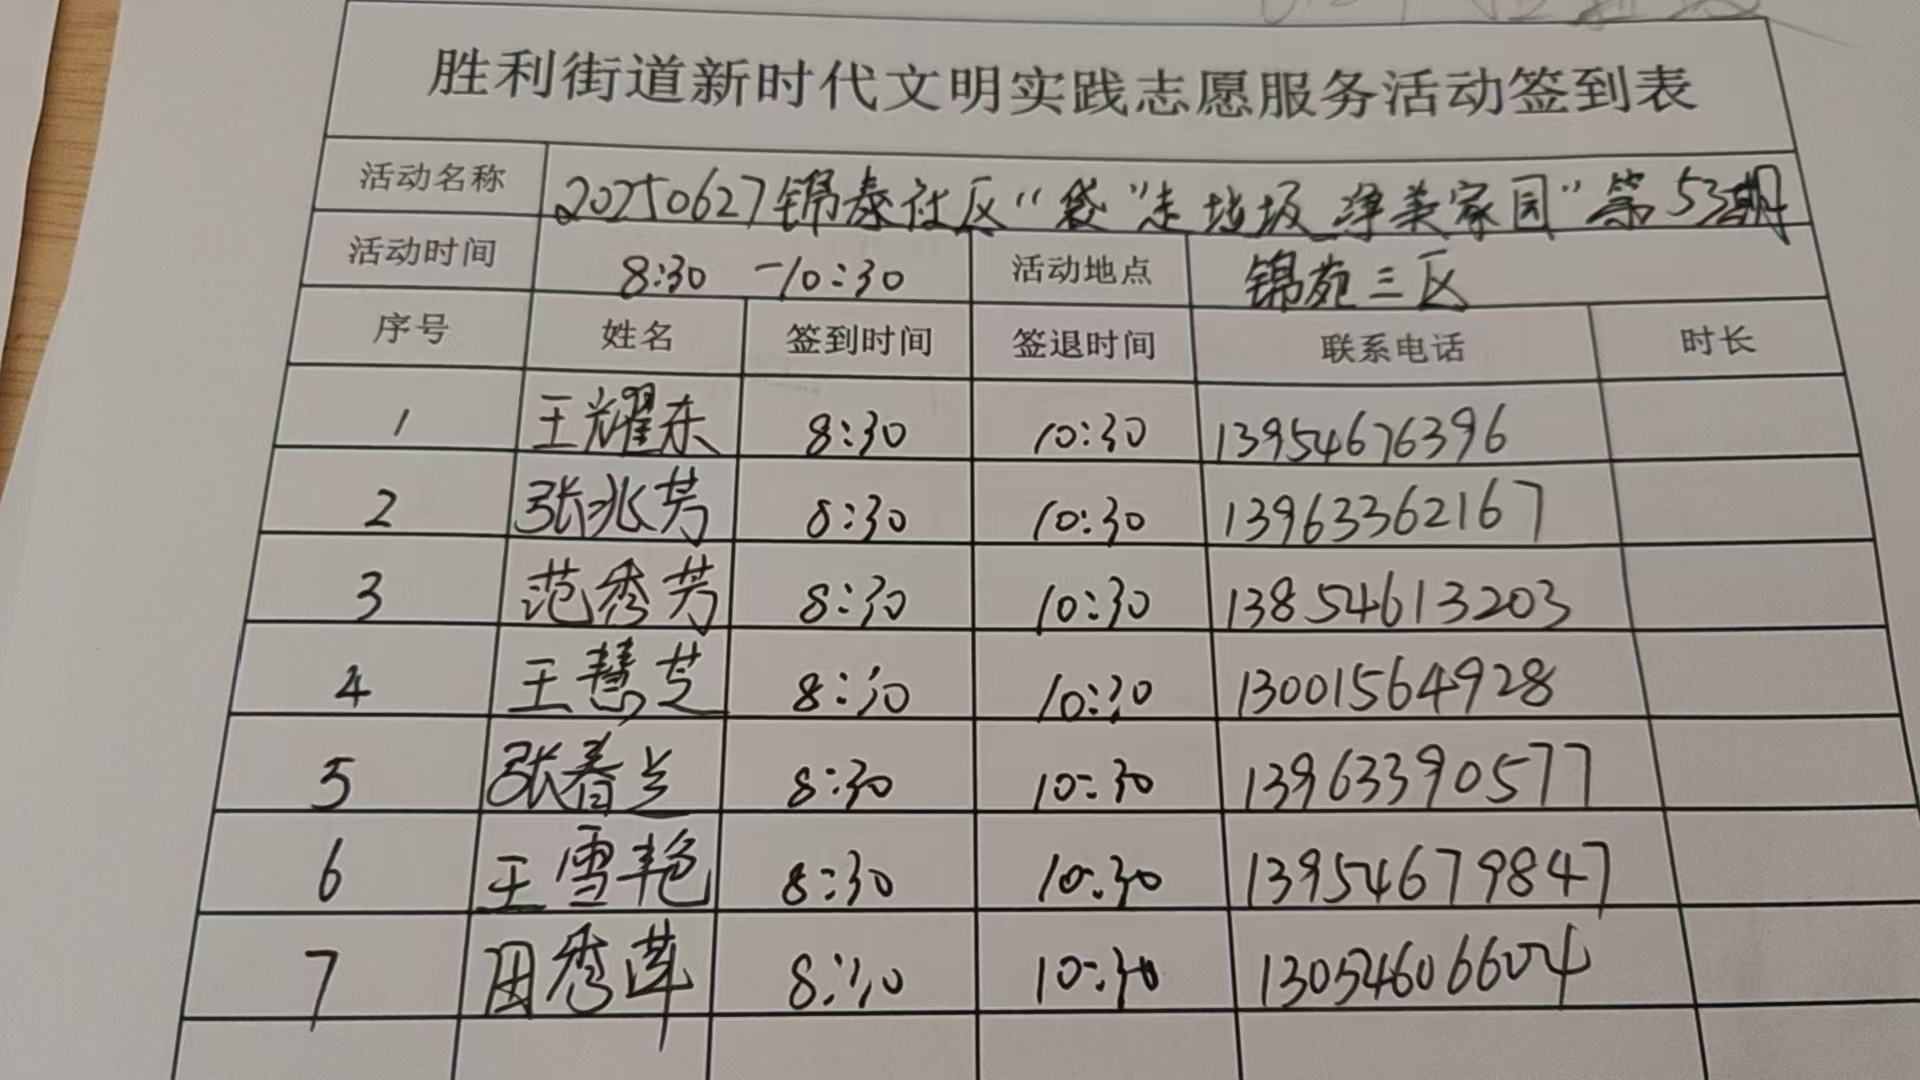 胜利街道新时代文明实践志愿服务活动签到表
活动名称 20250627锦泰社区“袋”走垃圾 净美家园”第53期
活动时间 8:30 -10:30 活动地点 锦苑三区
序号 姓名 签到时间 签退时间 联系电话 时长
1 王耀东 8:30 10:30 13954676396
2 张兆芳 8:30 10:30 13963362167
3 范秀芳 8:30 10:30 13854613203
4 王慧芝 8:30 10:30 13001564928
5 张春兰 8:30 10:30 13963390577
6 王雪艳 8:30 10:30 13954679847
7 田秀莲 8:30 10:30 13054606604